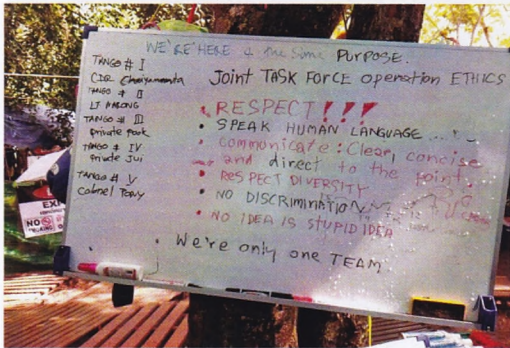 WE'RE HERE 4 the same PURPOSE.
Joint TASK FORCE operation ETHICS
TANGO # I
CDR Chaiyananta
TANGO # II
LT MALONG
TANGO # III
private park
TANGO # IV
Private Jui
TANGO # V
Colonel Tony
• RESPECT!!!
• SPEAK HUMAN LANGUAGE ....
• communicate: Clear, concise
and direct to the point.
• RESPECT DIVERSITY
• NO DISCRIMINATION
• NO IDEA IS STUPID IDEA
• We're only one TEAM
NO